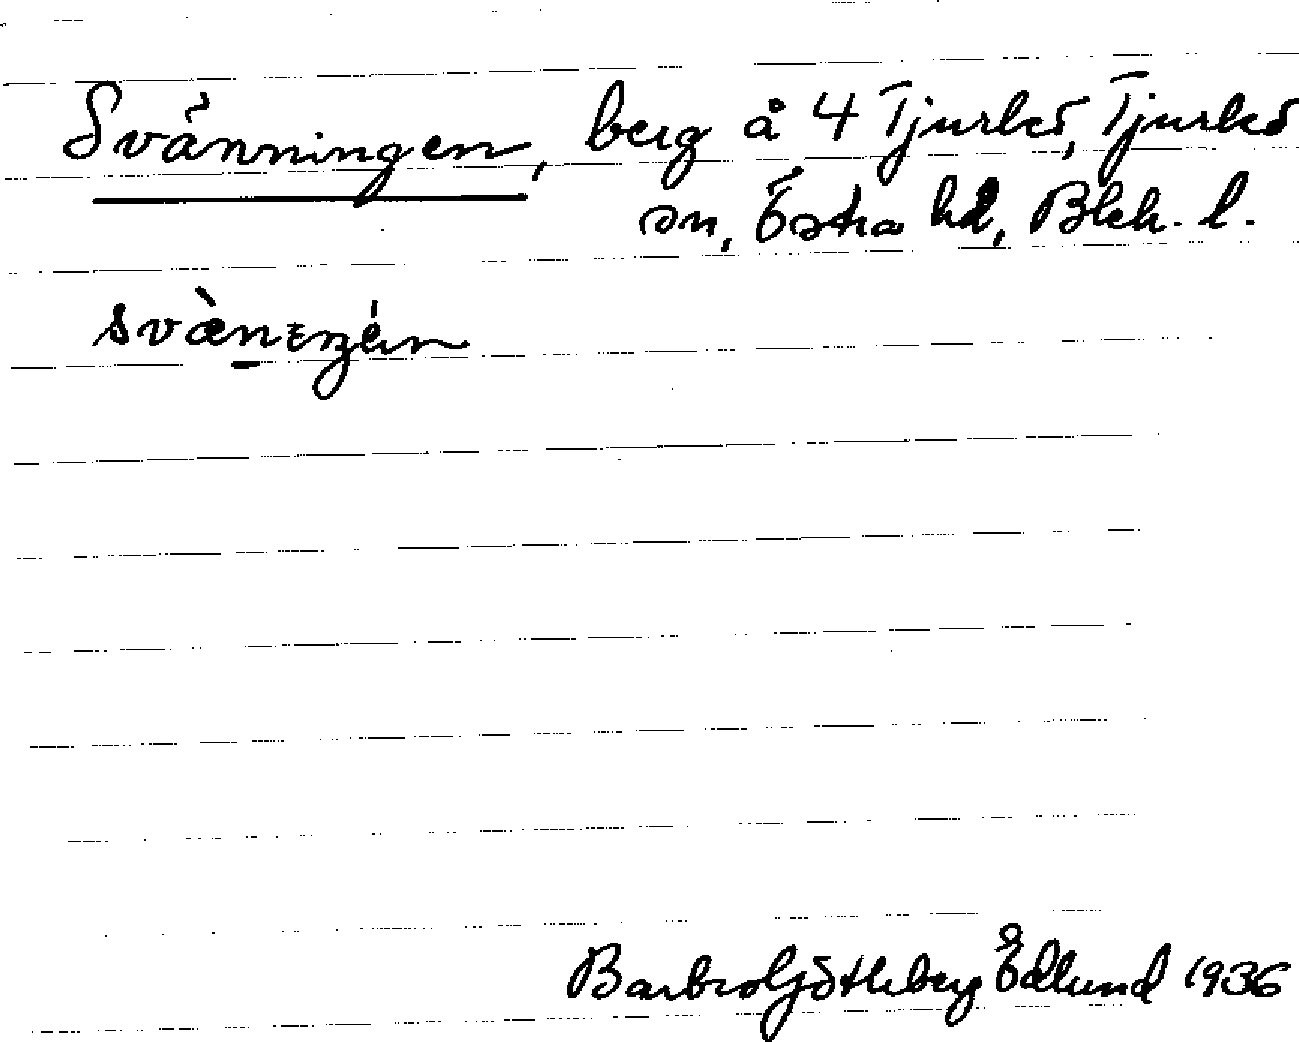 Svänningen, berg å 4 Tjurkö, Tjurkö
sn, Östra hd, Blek. l.
Barbro Götleberg Edlund 1936